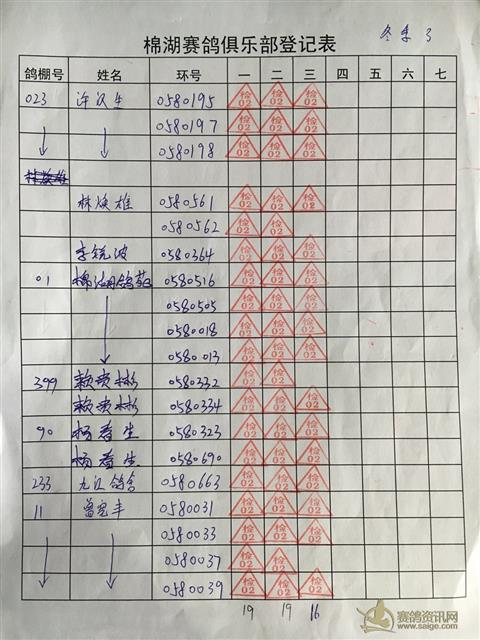 冬季 3
棉湖赛鸽俱乐部登记表
鸽棚号 姓名 环号 一 二 三 四 五 六 七
023 许汉生 0580195 检02 检02 检02
0580197 检02 检02 检02
0580198 检02 检02 检02
林焕雄 0580561 检02 检02 检02
0580562 检02 检02
李锐波 0580364 检02 检02 检02
01 棉湖鸽苑 0580516 检02 检02 检02
0580505 检02 检02 检02
0580018 检02 检02 检02
0580013 检02 检02 检02
399 0580332 检02 检02
0580334 检02 检02 检02
90 杨春生 0580323 检02 检02 检02
杨春生 0580690 检02 检02 检02
233 九江鸽舍 0580663 检02 检02 检02
11 曾宪丰 0580031 检02 检02 检02
0580033 检02 检02 检02
0580037 检02 检02
0580039 检02 检02 检02
19 19 16
赛鸽资讯网
www.saige.com